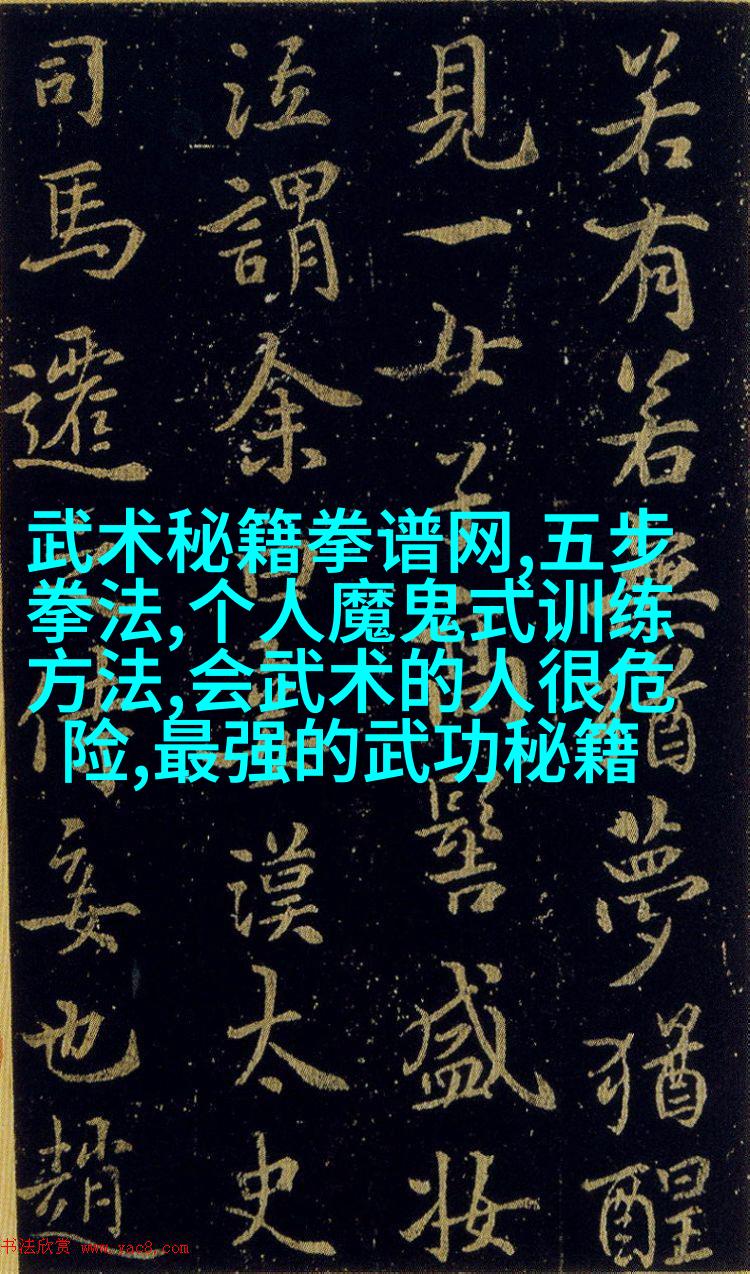 若有若無猶夢猶醒
見一女子高髻盛妝
泣謂余曰漢太史
司馬遷之侍妾也趙
武术秘籍拳谱网,五步
拳法,个人魔鬼式训练
方法,会武术的人很危
险,最强的武功秘籍
书法欣赏 www.yac8.com